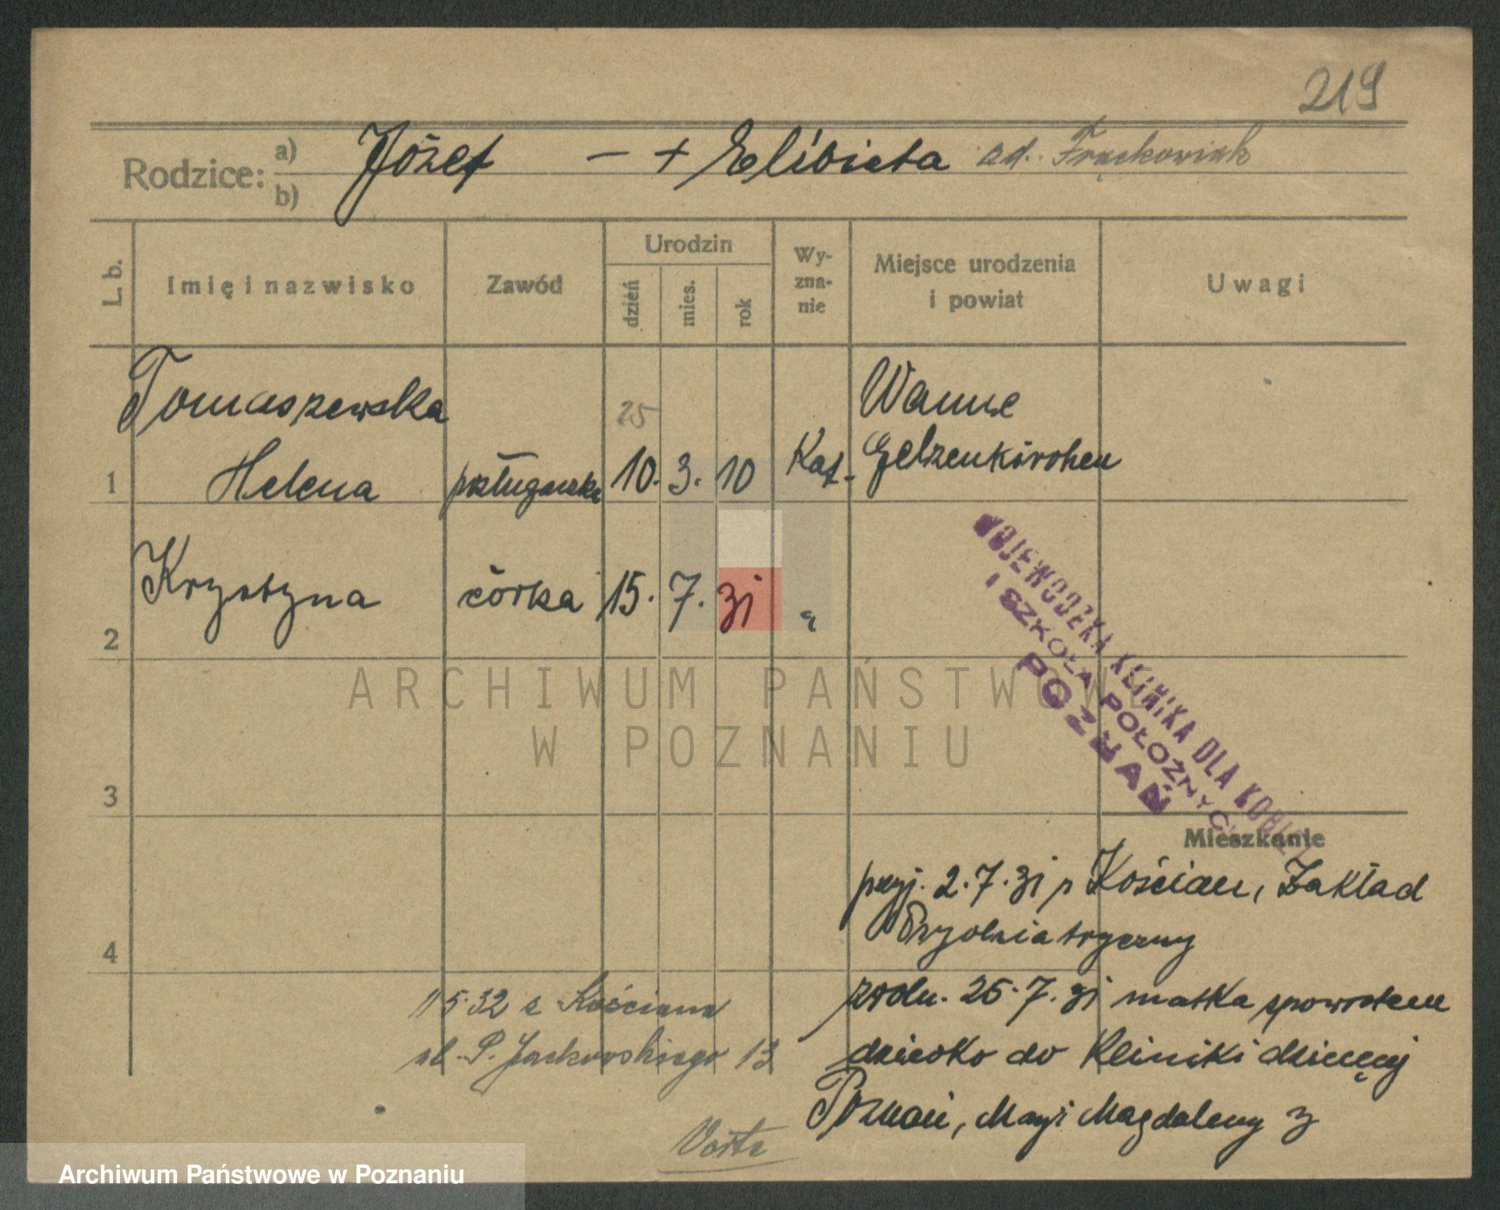 219
Rodzice: a) Józef — + Elżbieta
b)
L. b.
Imię i nazwisko
Zawód
Urodzin
dzień
mies.
rok
Wy-
zna-
nie
Miejsce urodzenia
i powiat
Uwagi
Tomaszewska
25
Wanne
1 Helena 10. 3. 10 Kat. Gelzenkirchen
2 Krystyna córka 15. 7. 31 "
WOJEWÓDZKA KLINIKA DLA KOBIET
I SZKOŁA POŁOŻNYCH
POZNAŃ
3
Mieszkanie
przyj. 2.7.31 z Kościan, Zakład
Psychiatryczny
4
zwoln. 26.7.31 matka spowrotem
15.32 z Kościana
dziecko do Kliniki dziecięcej
ul. P. Jackowskiego 13
Poznań, Maryi Magdaleny 3
Verte
ARCHIWUM PAŃSTWOWE
W POZNANIU
Archiwum Państwowe w Poznaniu